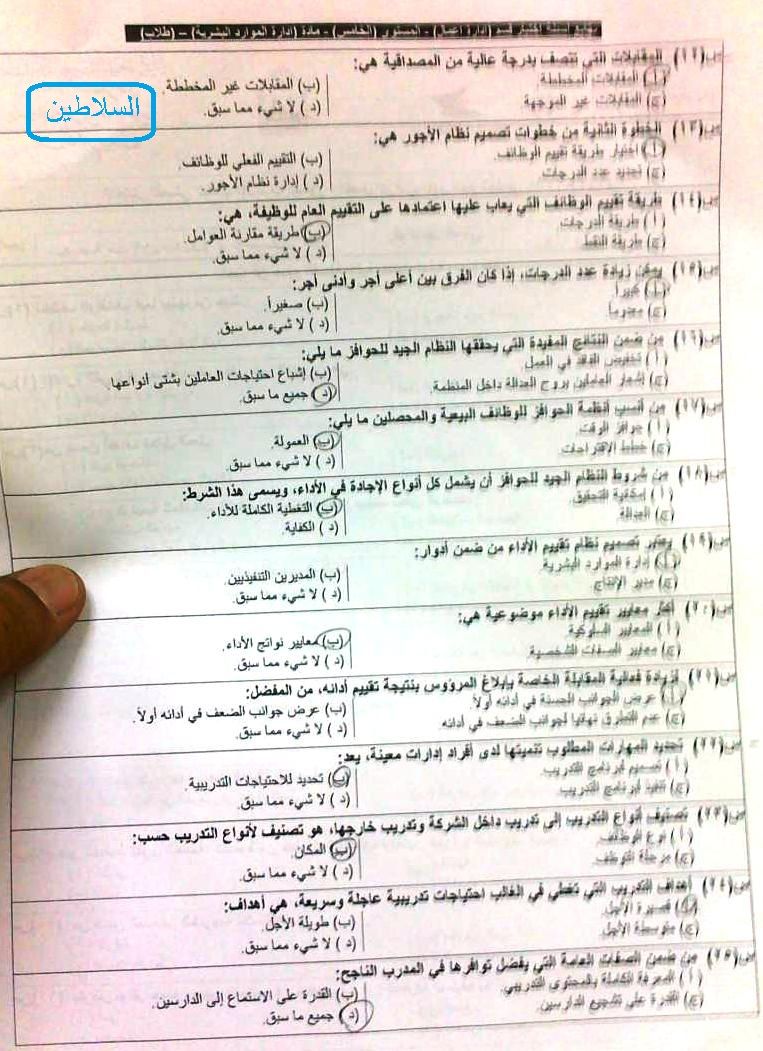 نموذج أسئلة اختبار قسم (إدارة أعمال) - المستوى (الخامس) - مادة (إدارة الموارد البشرية) – (طلاب)
السلاطين
س(١٢) المقابلات التي تتصف بدرجة عالية من المصداقية هي:
(أ) المقابلات المخططة. (ب) المقابلات غير المخططة.
(ج) المقابلات غير الموجهة. (د) لا شيء مما سبق.
س(١٣) الخطوة الثانية من خطوات تصميم نظام الأجور هي:
(أ) اختيار طريقة تقييم الوظائف. (ب) التقييم الفعلي للوظائف.
(ج) تحديد عدد الدرجات. (د) إدارة نظام الأجور.
س(١٤) طريقة تقييم الوظائف التي يعاب عليها اعتمادها على التقييم العام للوظيفة، هي:
(أ) طريقة الدرجات. (ب) طريقة مقارنة العوامل.
(ج) طريقة النقط. (د) لا شيء مما سبق.
س(١٥) يمكن زيادة عدد الدرجات، إذا كان الفرق بين أعلى أجر وأدنى أجر:
(أ) كبيراً. (ب) صغيراً.
(ج) معدوماً. (د) لا شيء مما سبق.
س(١٦) من ضمن النتائج المفيدة التي يحققها النظام الجيد للحوافز ما يلي:
(أ) تخفيض الفاقد في العمل. (ب) إشباع احتياجات العاملين بشتى أنواعها.
(ج) إشعار العاملين بروح العدالة داخل المنظمة. (د) جميع ما سبق.
س(١٧) من أنسب أنظمة الحوافز للوظائف البيعية والمحصلين ما يلي:
(أ) حوافز الوقت. (ب) العمولة.
(ج) خطط الاقتراحات. (د) لا شيء مما سبق.
س(١٨) من شروط النظام الجيد للحوافز أن يشمل كل أنواع الإجادة في الأداء، ويسمى هذا الشرط:
(أ) إمكانية التحقيق. (ب) التغطية الكاملة للأداء.
(ج) العدالة. (د) الكفاية.
س(١٩) يعتبر تصميم نظام تقييم الأداء من ضمن أدوار:
(أ) إدارة الموارد البشرية. (ب) المديرين التنفيذيين.
(ج) مدير الإنتاج. (د) لا شيء مما سبق.
س(٢٠) أكثر معايير تقييم الأداء موضوعية هي:
(أ) المعايير السلوكية. (ب) معايير نواتج الأداء.
(ج) معايير الصفات الشخصية. (د) لا شيء مما سبق.
س(٢١) لزيادة فعالية المقابلة الخاصة بإبلاغ المرؤوس بنتيجة تقييم أدائه، من المفضل:
(أ) عرض الجوانب الحسنة في أدائه أولاً. (ب) عرض جوانب الضعف في أدائه أولاً.
(ج) عدم التطرق نهائيا لجوانب الضعف في أدائه. (د) لا شيء مما سبق.
س(٢٢) تحديد المهارات المطلوب تنميتها لدى أفراد إدارات معينة، يعد:
(أ) تصميم لبرنامج التدريب. (ب) تحديد للاحتياجات التدريبية.
(ج) تنفيذ لبرنامج التدريب. (د) لا شيء مما سبق.
س(٢٣) تصنيف أنواع التدريب إلى تدريب داخل الشركة وتدريب خارجها، هو تصنيف لأنواع التدريب حسب:
(أ) نوع الوظائف. (ب) المكان.
(ج) مرحلة التوظف. (د) لا شيء مما سبق.
س(٢٤) أهداف التدريب التي تغطي في الغالب احتياجات تدريبية عاجلة وسريعة، هي أهداف:
(أ) قصيرة الأجل. (ب) طويلة الأجل.
(ج) متوسطة الأجل. (د) لا شيء مما سبق.
س(٢٥) من ضمن الصفات العامة التي يفضل توافرها في المدرب الناجح:
(أ) المعرفة الكاملة بالمحتوى التدريبي. (ب) القدرة على الاستماع إلى الدارسين.
(ج) القدرة على تشجيع الدارسين. (د) جميع ما سبق.